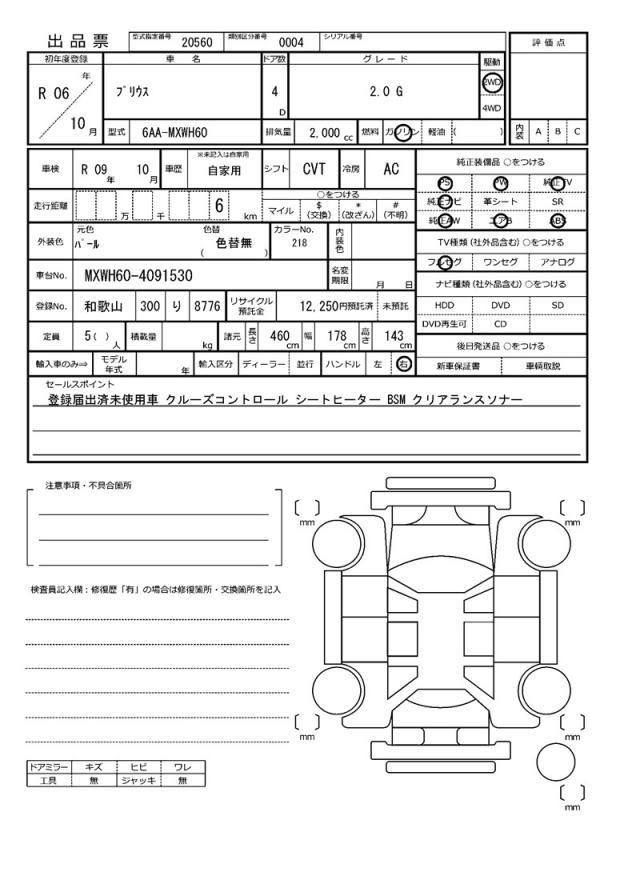 出品票 型式指定番号 20560 類別区分番号 0004 シリアル番号
評価点
初年度登録 車名 ドア数 グレード 駆動
R 06 年 10 月 プリウス 4 D 2.0 G 2WD 4WD
型式 6AA-MXWH60 排気量 2,000 cc 燃料 ガソリン 軽油 ( )
内装 A B C
車検 R 09 年 10 月 車歴 ※未記入は自家用 自家用 シフト CVT 冷房 AC
純正装備品 ○をつける
PS PW 純正TV
純正ナビ 革シート SR
純正AW エアB ABS
走行距離 万 千 6 km
○をつける
マイル $(交換) *(改ざん) #(不明)
TV種類 (社外品含む) ○をつける
フルセグ ワンセグ アナログ
外装色 元色 パール 色替 色替無 ( ) カラーNo. 218 内装色
車台No. MXWH60-4091530 名変期限 月 日
ナビ種類 (社外品含む) ○をつける
HDD DVD SD
DVD再生可 CD
登録No. 和歌山 300 り 8776 リサイクル預託金 12,250円預託済 未預託
定員 5 ( ) 人 積載量 kg 諸元 長さ 460 cm 幅 178 cm 高さ 143 cm
後日発送品 ○をつける
新車保証書 車輌取説
輸入車のみ⇒ モデル年式 年 輸入区分 ディーラー 並行 ハンドル 左 右
セールスポイント
登録届出済未使用車 クルーズコントロール シートヒーター BSM クリアランスソナー
注意事項・不具合箇所
検査員記入欄：修復歴「有」の場合は修復箇所・交換箇所を記入
mm
mm
mm
mm
mm
ドアミラー キズ ヒビ ワレ
工具 無 ジャッキ 無